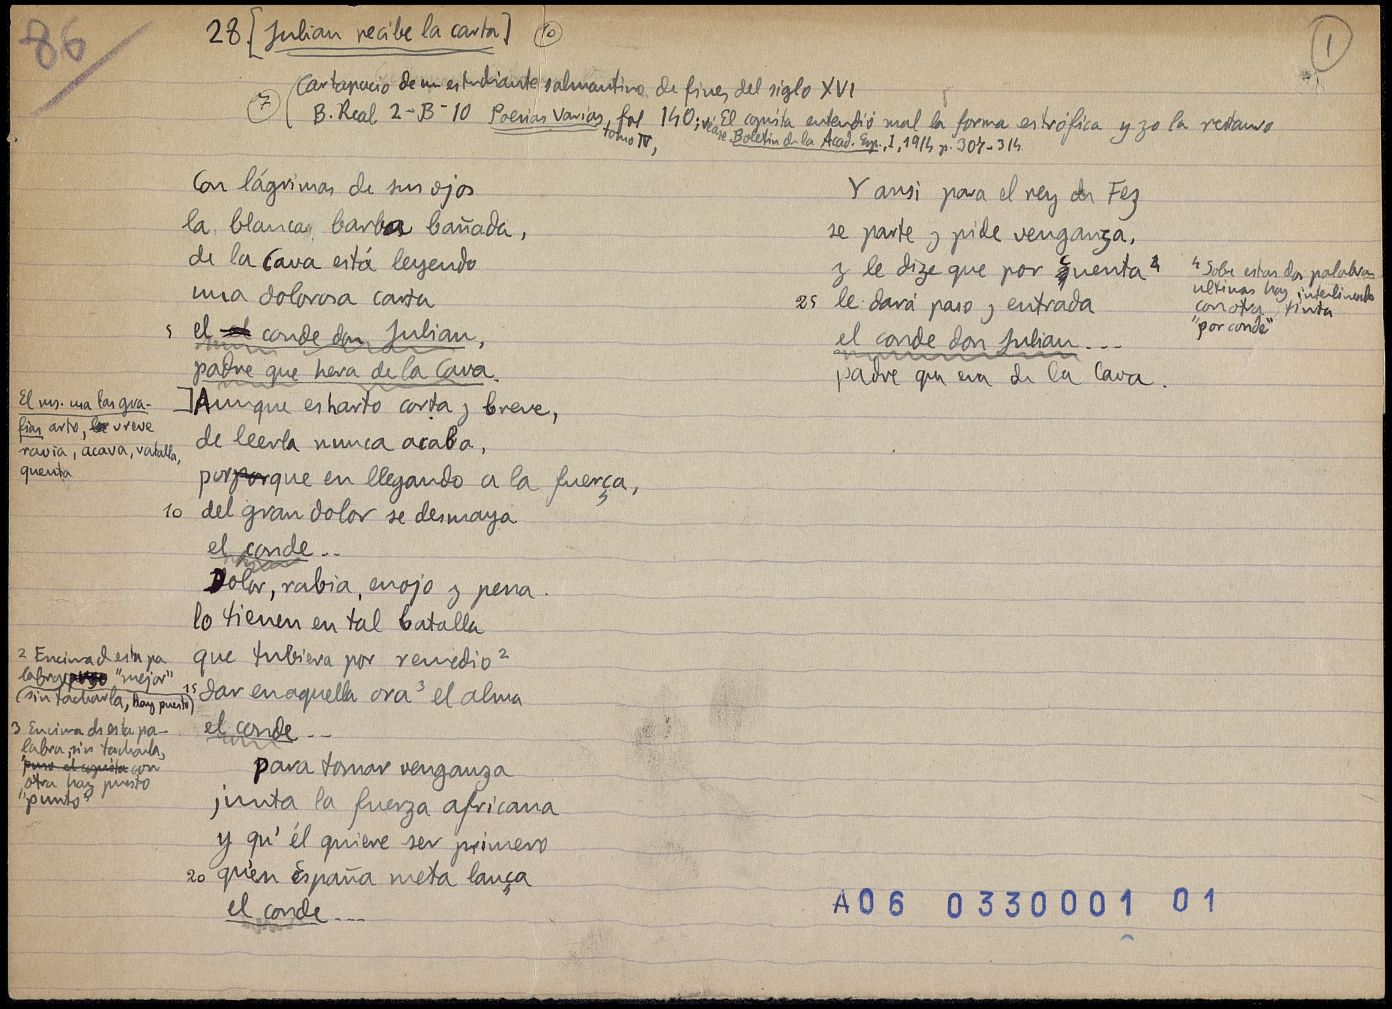 86
28 [Julian recibe la carta] 10
1
7 Cartapacio de un estudiante salmantino de fines del siglo XVI
B. Real 2-B-10 Poesias Varias, tomo IV, fol 140; El copista entendió mal la forma estrófica y yo la restauro
véase Boletin de la Acad. Esp., I, 1914 p. 307-314
Con lágrimas de sus ojos
la blanca barba bañada,
de la Cava está leyendo
una dolorosa carta
5 el el conde don Julian,
padre que hera de la Cava.
]Aunque es harto corta y breve,
de leerla nunca acaba,
porporque en llegando a la fuerça,
10 del gran dolor se desmaya
el conde...
Dolor, rabia, enojo y pena.
lo tienen en tal batalla
que tubiera por remedio 2
15 dar en aquella ora 3 el alma
el conde...
para tomar venganza
junta la fuerza africana
y qu' él quiere ser primero
20 qu'en España meta lança
el conde....
El ms. usa las gra-
fias arto, vreve
ravia, acava, vatalla,
quenta
2 Encima d esta pa
labra "mejor"
(sin tacharla, hay puesto)
3 Encima de esta pa-
labra, sin tacharla,
puso el copista con
otra hay puesto
"punto"
Y ansi para el rey de Fez
se parte y pide venganza,
y le dize que por quenta 4
25 le dará paso y entrada
el conde don Julian...
padre que era de la Cava.
4 Sobre estas dos palabras
ultimas hay interlineado
con otra tinta
"por conde"
A06 0330001 01